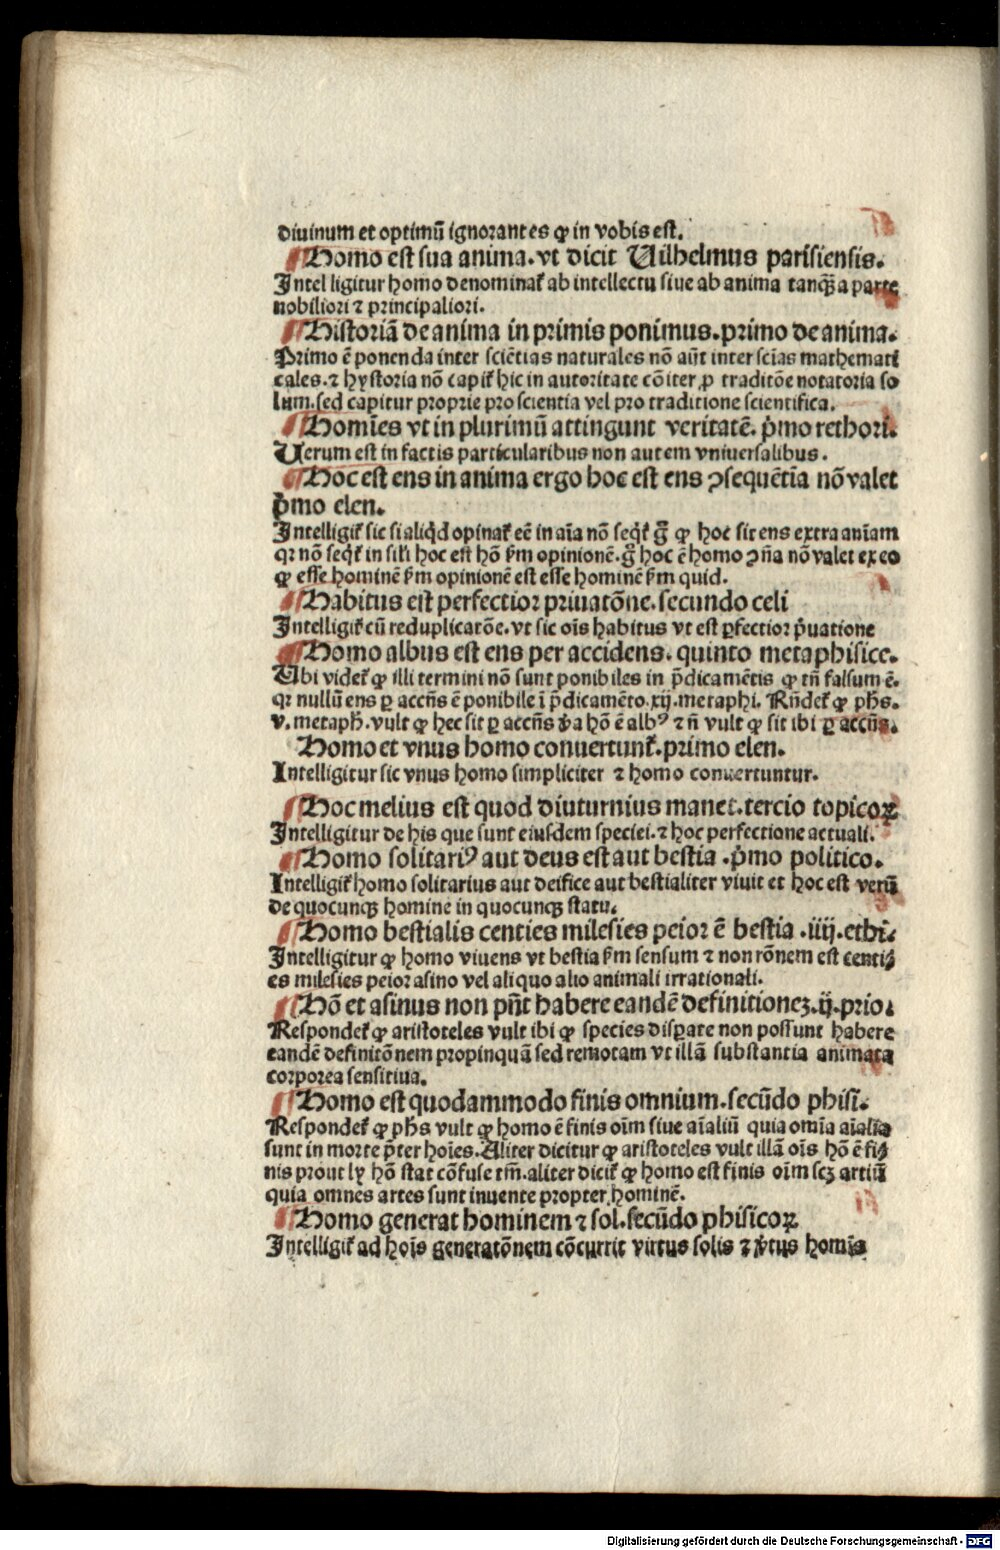 diuinum et optimū ignorantes ꝙ in vobis est.
Homo est sua anima. vt dicit Uilhelmus parisiensis.
Intelligitur homo denominat᷑ ab intellectu siue ab anima tanqȝ a parte
nobiliori ⁊ principaliori.
Historiā de anima in primis ponimus. primo de anima.
Primo ē ponenda inter sciētias naturales nō aūt inter scīas mathemati
cales. ⁊ hystoria nō capit᷑ hic in autoritate cōiter ꝓ traditōe notatoria so
lum. sed capitur proprie pro scientia vel pro traditione scientifica.
Homīes vt in plurimū attingunt veritatē. p̄mo rethori.
Uerum est in factis particularibus non autem vniuersalibus.
Hoc est ens in anima ergo hoc est ens ↄsequētia nō valet
p̄mo elen.
Intelligit᷑ sic si aliqͥd opinat᷑ eē in aīa nō seqͥt᷑ gͦ ꝙ hoc sit ens extra anīam
qꝛ nō seqͥt᷑ in sil'i hoc est hō ẜm opinionē. gͦ hoc ē homo ↄn̄a nō valet ex eo
ꝙ esse hominē ẜm opinionē est esse hominē ẜm quid.
Habitus est perfectior priuatōne. secundo celi
Intelligit᷑ cū reduplicatōe. vt sic oīs habitus vt est ꝑfectior p̄uatione
Homo albus est ens per accidens. quinto metaphisice.
Ubi videt᷑ ꝙ illi termini nō sunt ponibiles in p̄dicamētis ꝙ tn̄ falsum ē.
qꝛ nullū ens ꝑ accn̄s ē ponibile ī p̄dicamēto. xij. metaphi. Rn̄det᷑ ꝙ ph̄s.
v. metaph̄. vult ꝙ hec sit ꝑ accn̄s v̄a hō ē albꝰ ⁊ n̄ vult ꝙ sit ibi ꝑ accn̄s.
Homo et vnus homo conuertunt᷑. primo elen.
Intelligitur sic vnus homo simpliciter ⁊ homo conuertuntur.
Hoc melius est quod diuturnius manet. tercio topicoꝝ
Intelligitur de his que sunt eiusdem speciei. ⁊ hoc perfectione actuali.
Homo solitariꝰ aut deus est aut bestia. p̄mo politico.
Intelligit᷑ homo solitarius aut deifice aut bestialiter viuit et hoc est verū
de quocunqȝ homine in quocunqȝ statu.
Homo bestialis centies milesies peior ē bestia. iiij. ethi.
Intelligitur ꝙ homo viuens vt bestia ẜm sensum ⁊ non rōnem est centi⸗
es milesies peior asino vel aliquo alio animali irrationali.
Hō et asinus non pn̄t habere eandē definitionez. ij. prio.
Respondet᷑ ꝙ aristoteles vult ibi ꝙ species disꝑate non possunt habere
eandē definitōnem propinquā sed remotam vt illā substantia animata
corporea sensitiua.
Homo est quodammodo finis omnium. secūdo phisi.
Respondet᷑ ꝙ ph̄s vult ꝙ homo ē finis oīm siue aīaliū quia omīa aīalia
sunt in morte p̄ter hoīes. Aliter dicitur ꝙ aristoteles vult illā oīs hō ē fi⸗
nis prout ly hō stat cōfuse tm̄. aliter dicit᷑ ꝙ homo est finis oīm scȝ artiū
quia omnes artes sunt inuente propter hominē.
Homo generat hominem ⁊ sol. secūdo phisicoꝝ
Intelligit᷑ ad hoīs generatōnem cōcurrit virtus solis ⁊ v̄tus homīs
Digitalisierung gefördert durch die Deutsche Forschungsgemeinschaft - DFG